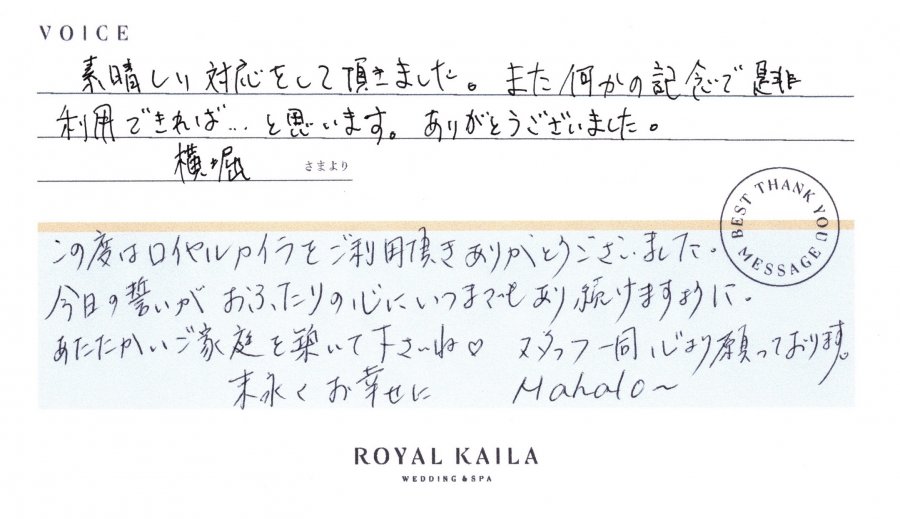 VOICE
素晴しい対応をして頂きました。また何かの記念で是非
利用できれば…と思います。ありがとうございました。
横堀 さまより
BEST THANK YOU MESSAGE
この度はロイヤルカイラをご利用頂きありがとうございました。
今日の誓いが おふたりの心にいつまでもあり続けますように。
あたたかいご家庭を築いて下さいね♡ スタッフ一同心より願っております。
末永くお幸せに Mahalo〜
ROYAL KAILA
WEDDING & SPA